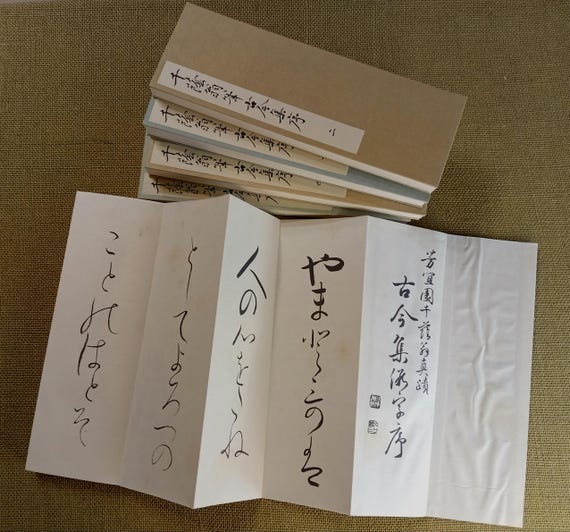 千蔭翁筆古今集序 二
千蔭翁筆古今集序
千蔭翁筆古今集序
千蔭翁筆古今集序
芳宜園千蔭翁真蹟
古今集假字序
やまとうたは
人の心をたね
としてよろつの
ことのはとそ